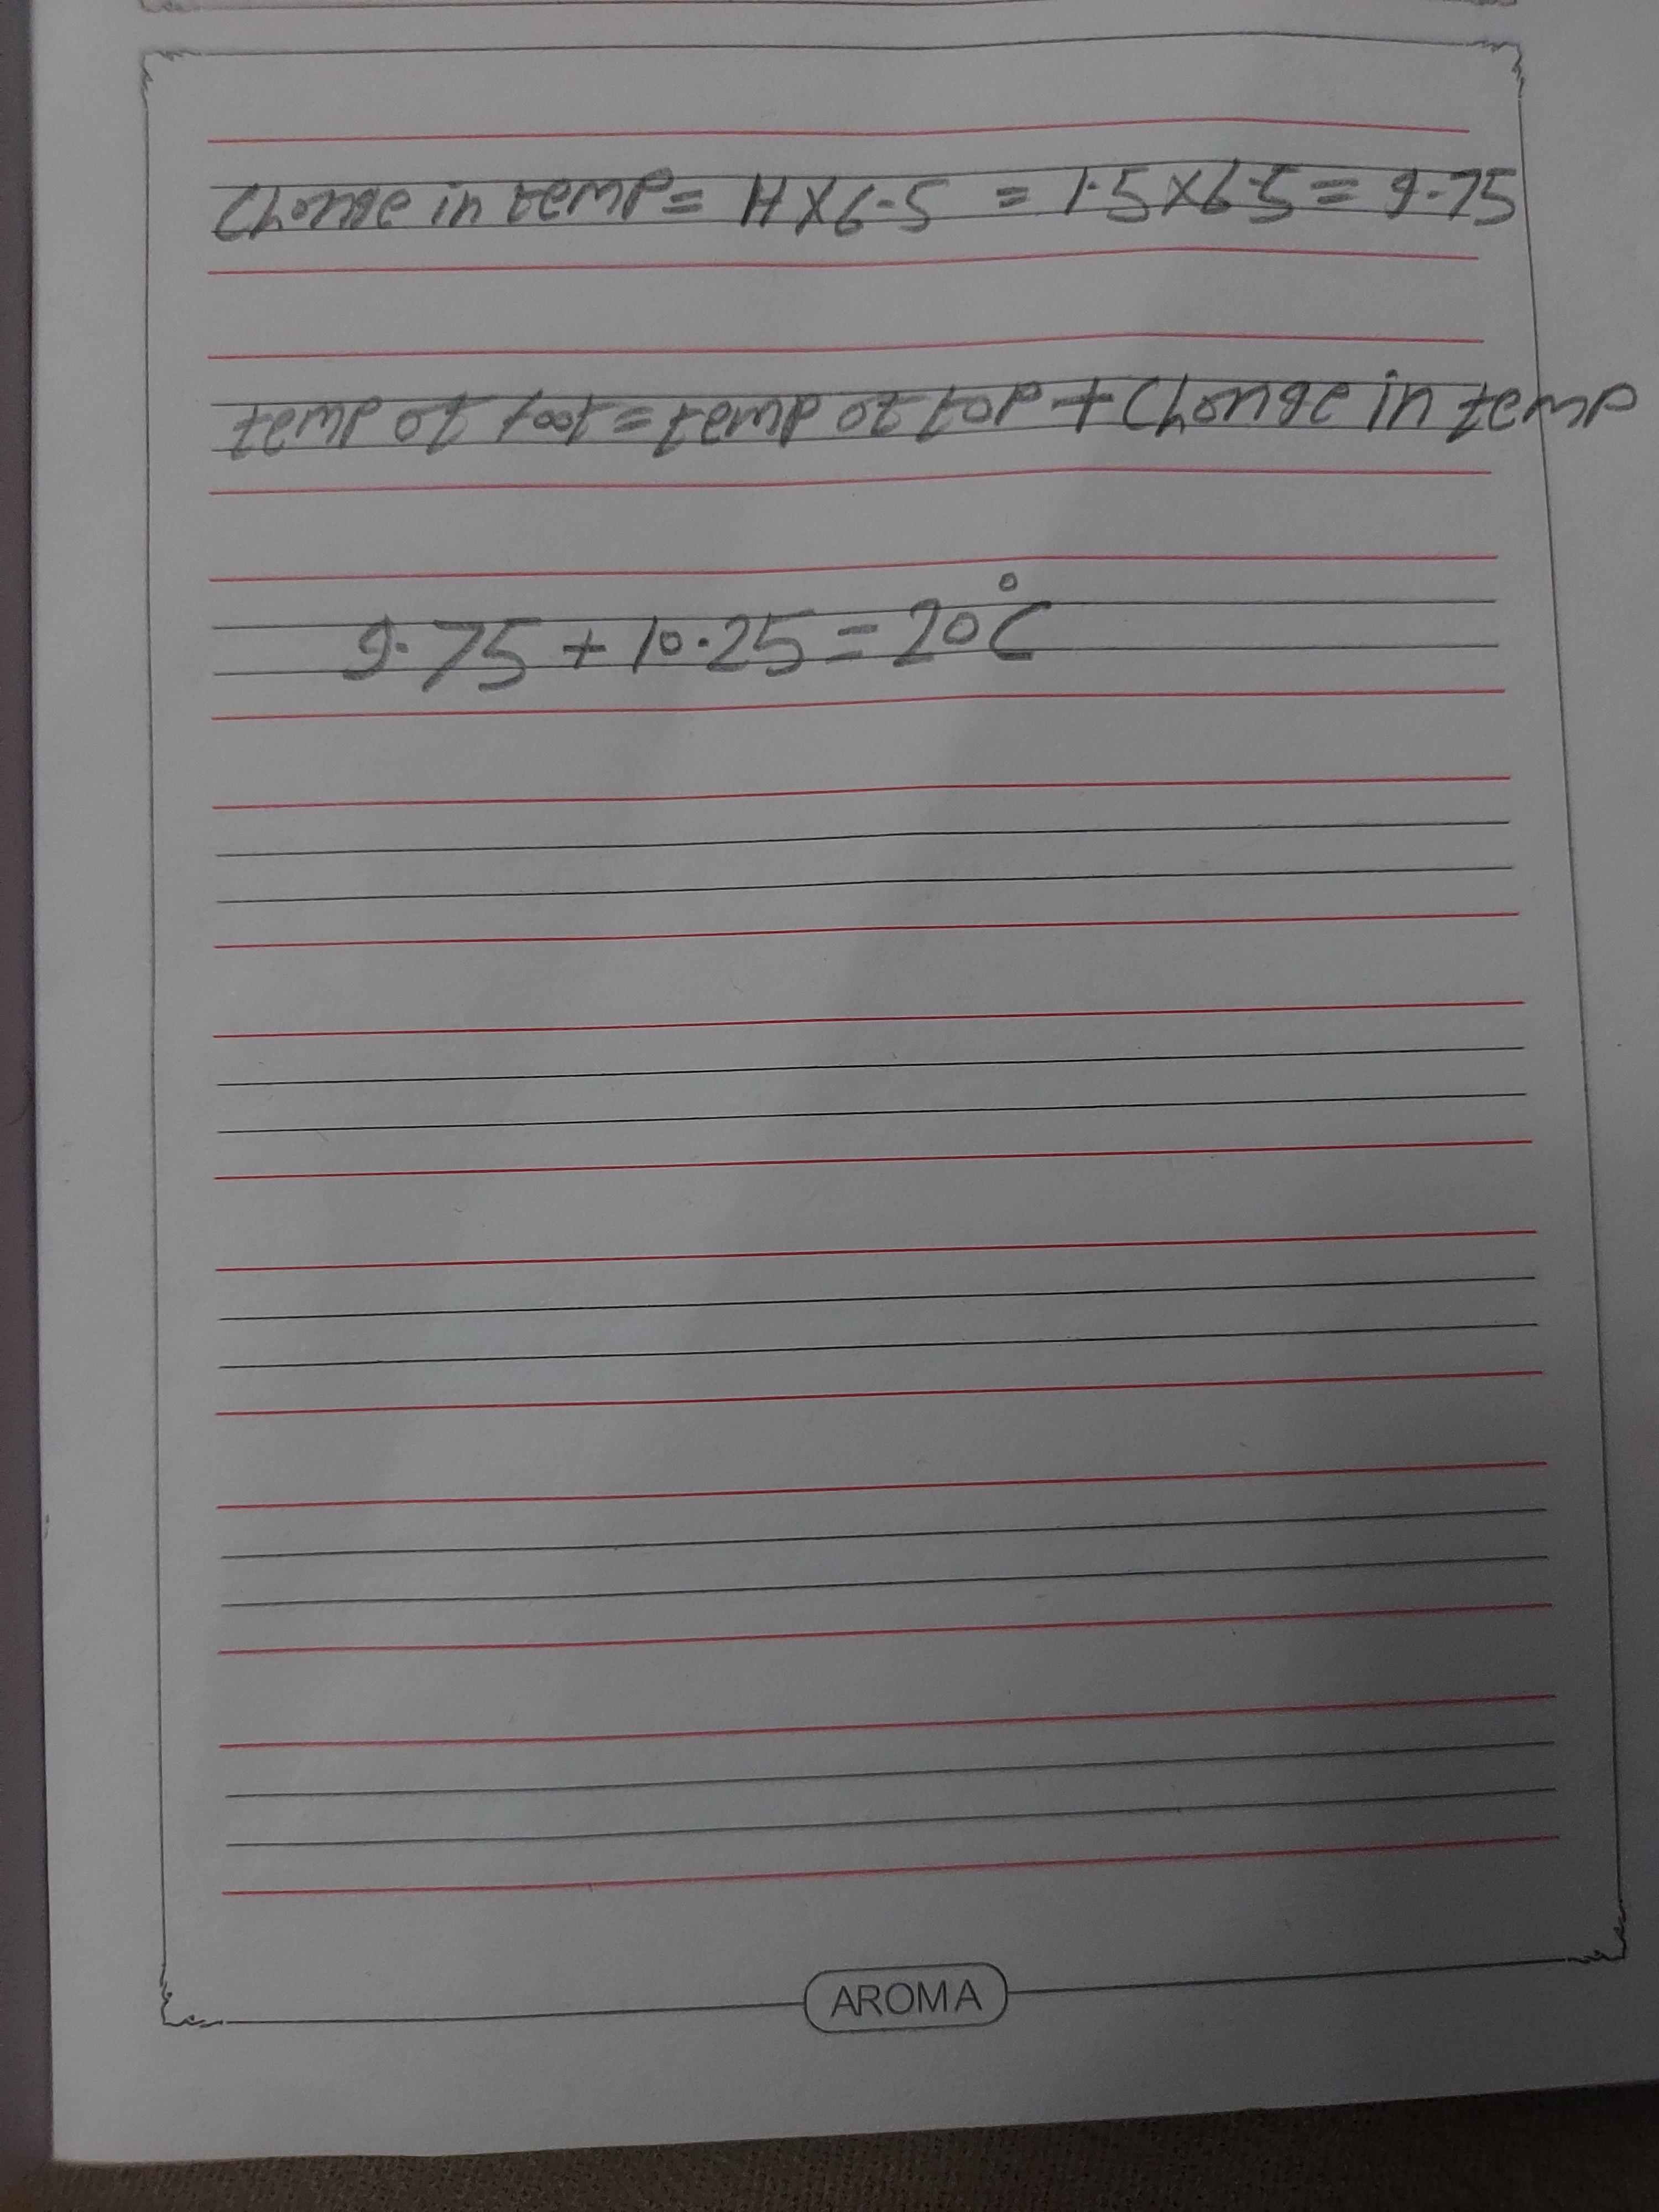 Change in temp = H X 6.5 = 1.5 X 6.5 = 9.75
temp of foot = temp of top + Change in temp
9.75 + 10.25 = 20°C
AROMA